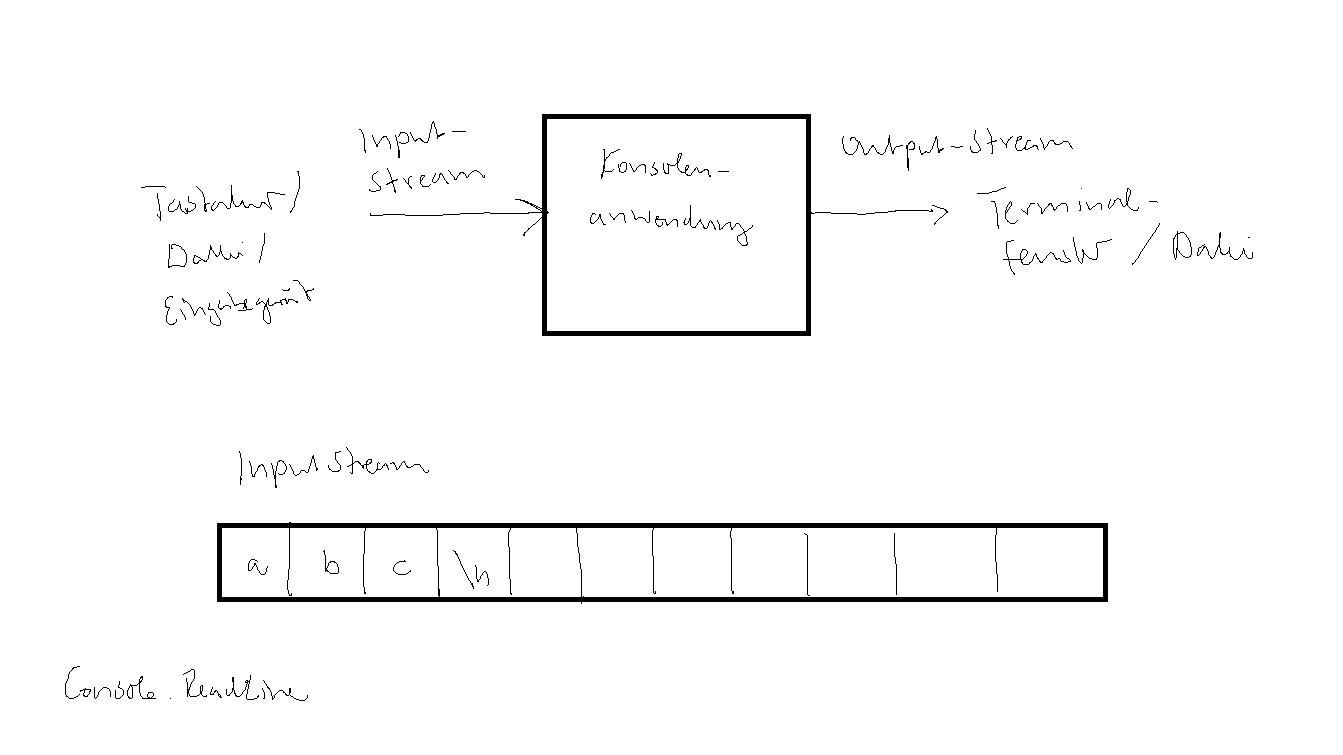 Input-
Stream
Tastatur/
Datei/
Eingabegerät
Konsolen-
anwendung
Output-Stream
Terminal-
fenster / Datei
Input Stream
a b c \n
Console.ReadLine